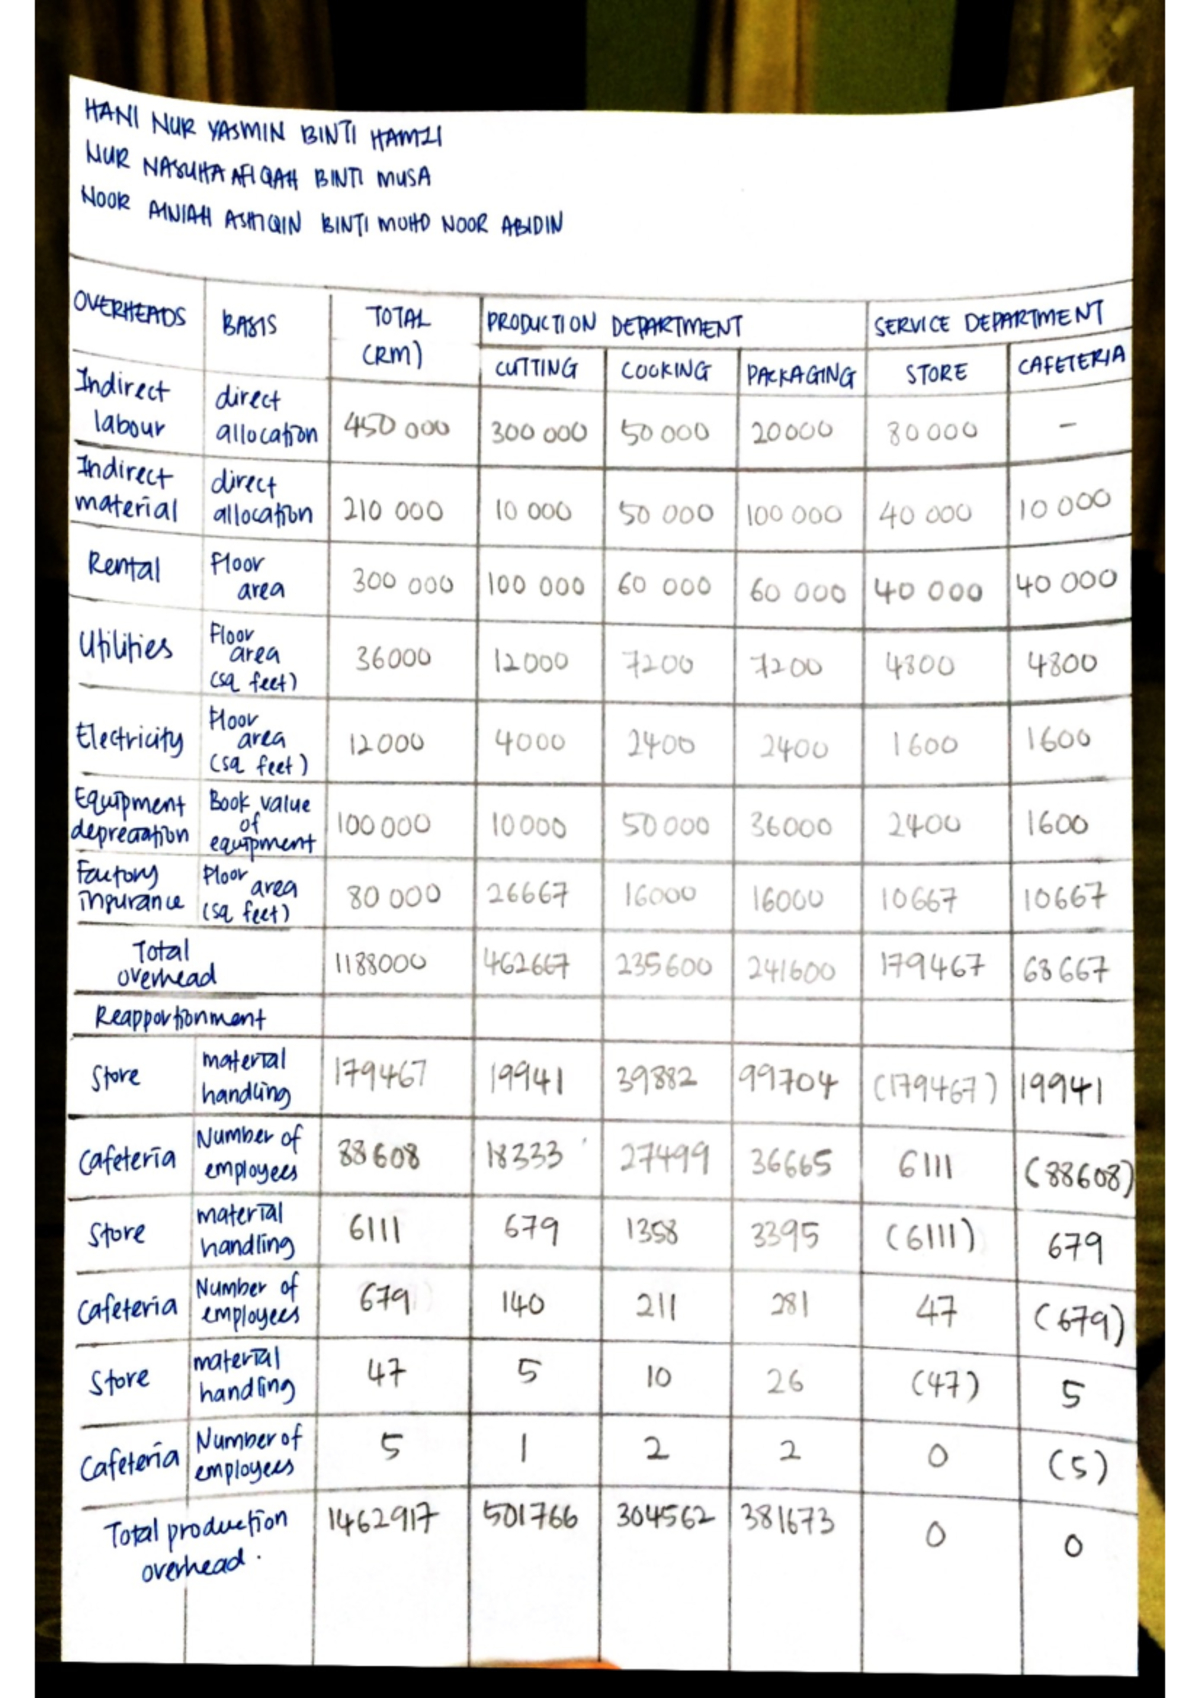 HANI NUR YASMIN BINTI HAMZI
NUR NASUHA AFIQAH BINTI MUSA
NOOR AINIAH ASHIQIN BINTI MOHD NOOR ABIDIN
OVERHEADS BASIS TOTAL (RM) PRODUCTION DEPARTMENT SERVICE DEPARTMENT
CUTTING COOKING PACKAGING STORE CAFETERIA
Indirect labour direct allocation 450 000 300 000 50 000 20000 80 000 -
Indirect material direct allocation 210 000 10 000 50 000 100 000 40 000 10 000
Rental Floor area 300 000 100 000 60 000 60 000 40 000 40 000
Utilities Floor area (sq feet) 36000 12000 7200 7200 4800 4800
Electricity Floor area (sq feet) 12000 4000 2400 2400 1600 1600
Equipment depreciation Book value of equipment 100 000 10000 50 000 36000 2400 1600
Factory insurance Floor area (sq feet) 80 000 26667 16000 16000 10667 10667
Total overhead 1188000 462667 235600 241600 179467 68667
Reapportionment
Store material handling 179467 19941 39882 99704 (179467) 19941
Cafeteria Number of employees 88608 18333 27499 36665 6111 (88608)
Store material handling 6111 679 1358 3395 (6111) 679
Cafeteria Number of employees 679 140 211 281 47 (679)
Store material handling 47 5 10 26 (47) 5
Cafeteria Number of employees 5 1 2 2 0 (5)
Total production overhead. 1462917 501766 304562 381673 0 0